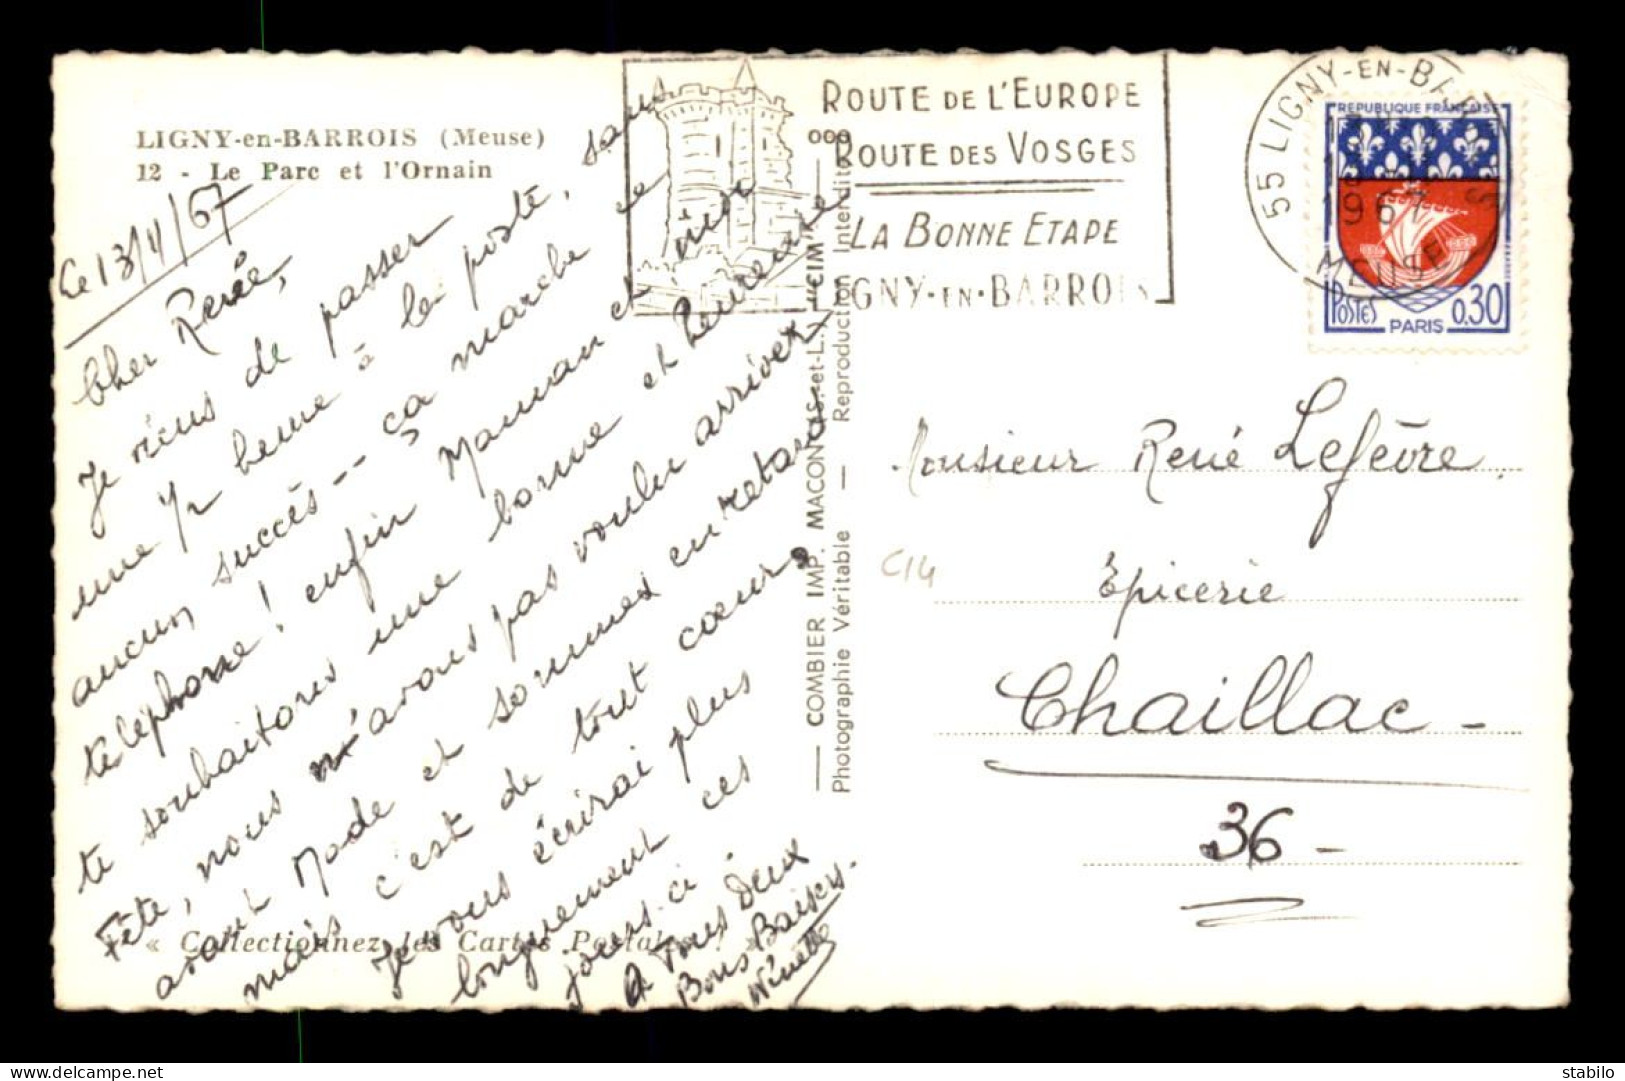 LIGNY-en-BARROIS (Meuse)
12 - Le Parc et l'Ornain
Le 13/11/67
Cher Renée,
Je viens de passer
une ½ heure à la poste, sans
aucun succès -- ça marche
téléphone ! enfin Maman et
te souhaitons une bonne et heureuse
Fête, nous n'avons pas voulu arriver
avant Mode et sommes en retard
mais c'est de tout cœur
Je vous écrirai plus
longuement ces
jours-ci
A Tous Deux
Bons Baisers.
Ninette
« Collectionnez les Cartes Postales ! »
COMBIER IMP. MACON (S.-et-L.) "CIM"
Photographie Véritable — Reproduction Interdite
ROUTE DE L'EUROPE
ROUTE DES VOSGES
LA BONNE ETAPE
LIGNY-EN-BARROIS
55 LIGNY-EN-BARROIS
1967
MEUSE
REPUBLIQUE FRANÇAISE
POSTES
PARIS
0,30
Monsieur René Lefèvre
Épicerie
Chaillac -
36 -
C14
delcampe.net
stabilo